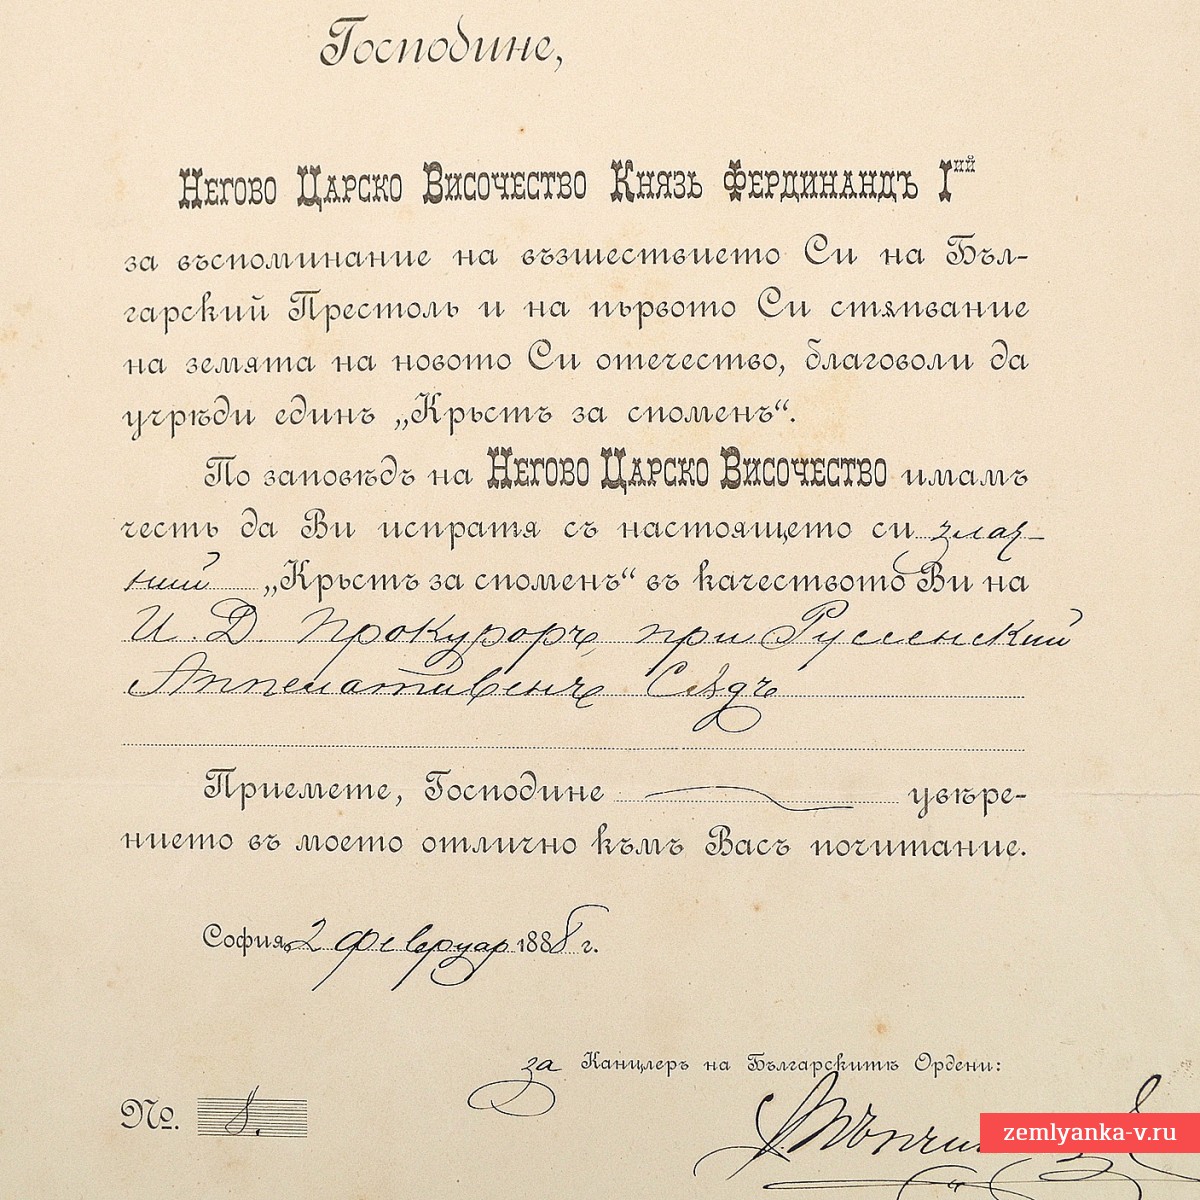 Господине,
Негово Царско Височество Князь Фердинандъ Iий
за въспоминание на възшествието Си на Бъл-
гарский Престолъ и на първото Си стѫпвание
на земята на новото Си отечество, благоволи да
учрѣди единъ „Крьстъ за споменъ“.
По заповѣдъ на Негово Царско Височество имамъ
честь да Ви испратя съ настоящето си
„Крьстъ за споменъ“ въ качеството Ви на
И. Д. Прокуроръ при Руссенский
Аппелативенъ Сѫдъ
Приемете, Господине увѣре-
нието въ моето отлично къмъ Васъ почитание.
София, 2 Февруар 1888 г.
за Канцлеръ на Българскитѣ Ордени:
No. 8.
zemlyanka-v.ru